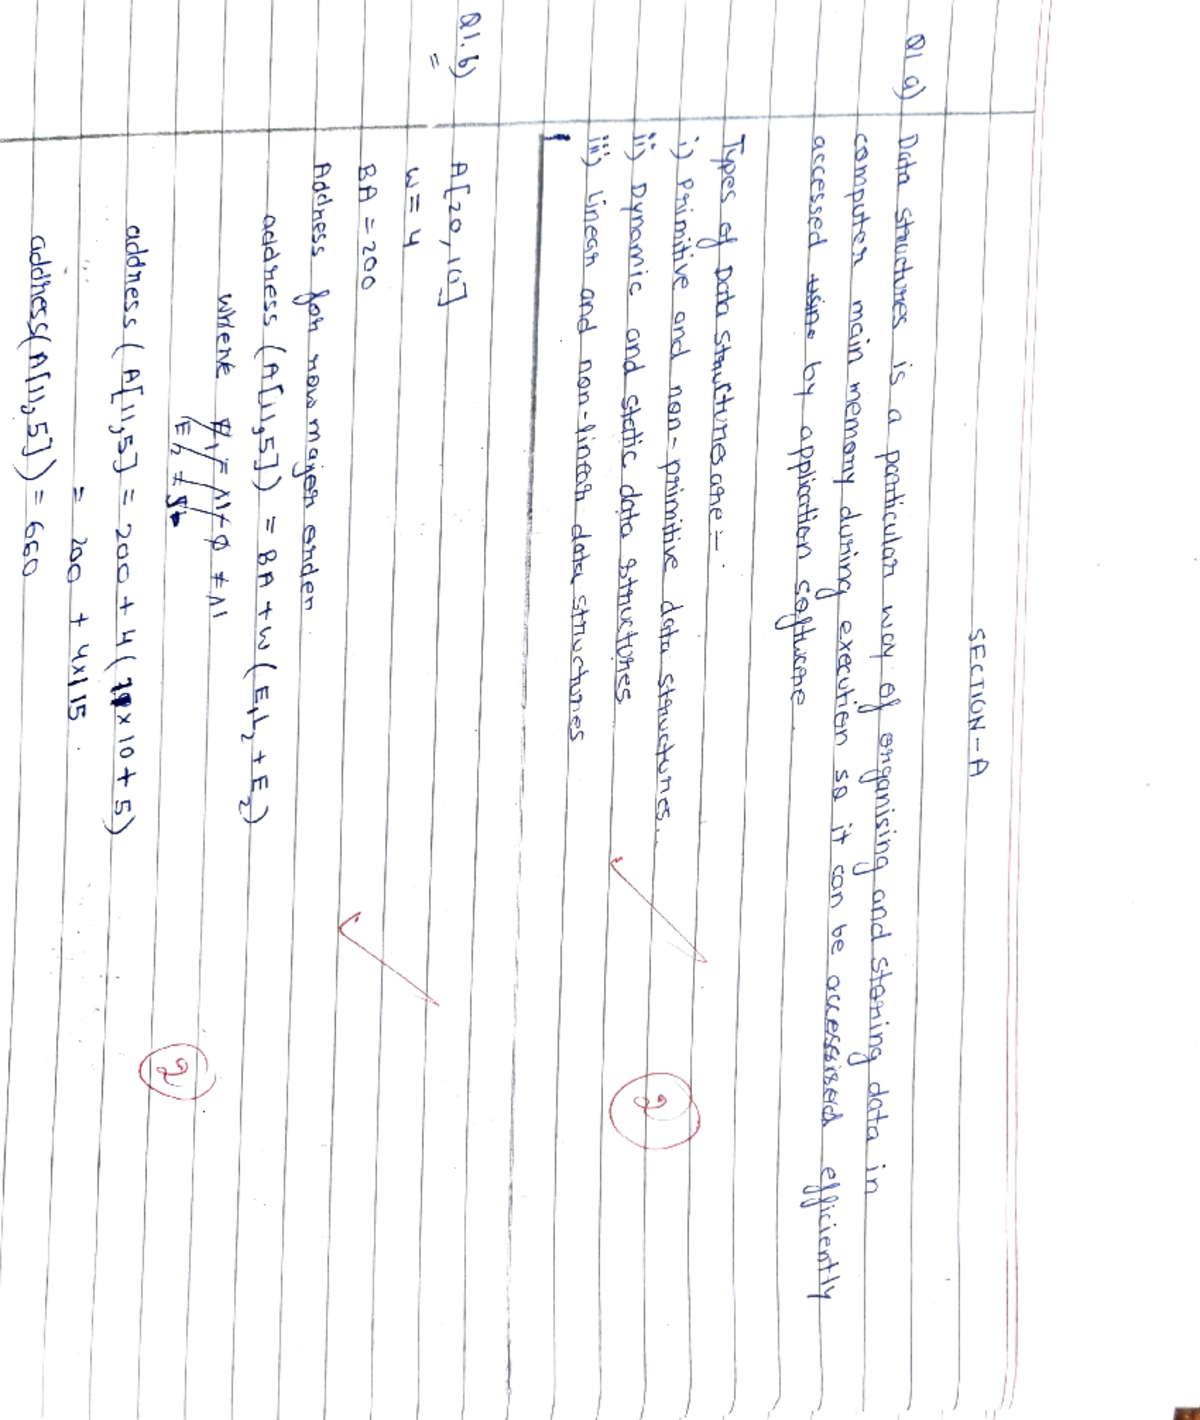 SECTION-A
Q1 a) Data structures is a particular way of organising and storing data in
computer main memory during execution so it can be accessised efficiently
accessed by application software
Types of Data structures are:-
i) Primitive and non-primitive data structures.
ii) Dynamic and static data structures
iii) Linear and non-linear data structures
2
Q1.b) A[20,10]
W = 4
BA = 200
Address for row major order
address (A[11,5]) = BA + W (E₁L₂ + E₂)
where
address (A[11,5] = 200 + 4 (11 x 10 + 5)
= 200 + 4x115
address(A[11,5]) = 660
2